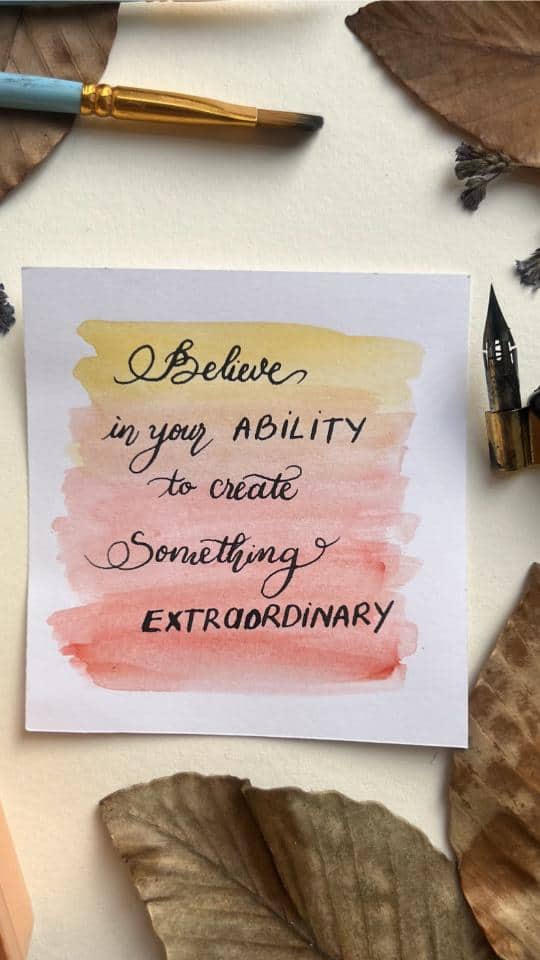 Believe
in your ABiLiTY
to create
Something
EXTRaORDiNARY